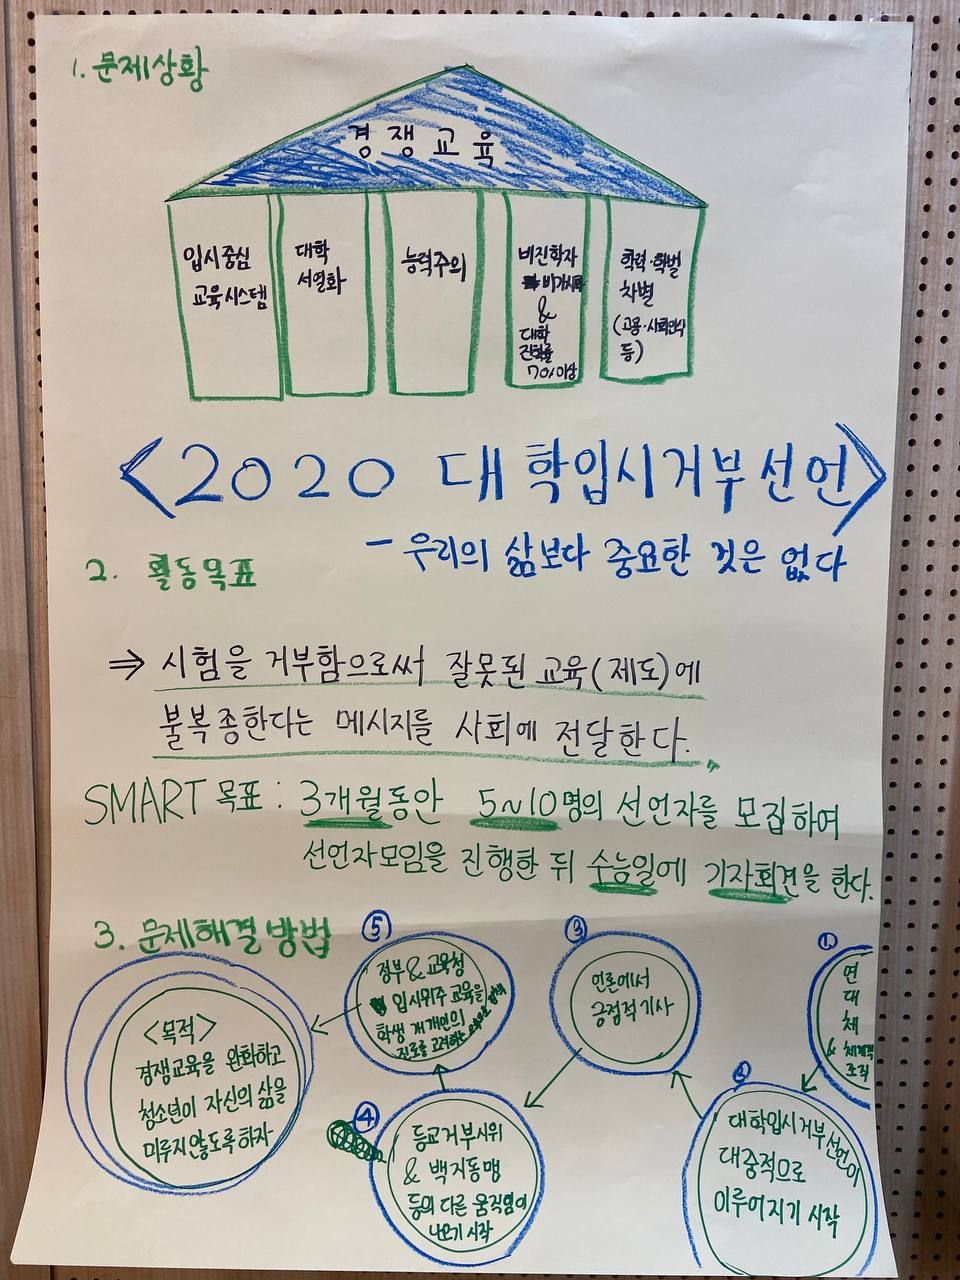 1. 문제상황
경쟁교육
입시중심
교육시스템
대학
서열화
능력주의
비진학자
비가시화
&
대학
진학률
70%이상
학력·학벌
차별
(고용·사회인식
등)
<2020 대학입시거부선언>
- 우리의 삶보다 중요한 것은 없다
2. 활동목표
⇒ 시험을 거부함으로써 잘못된 교육(제도)에
불복종한다는 메시지를 사회에 전달한다.
SMART 목표 : 3개월동안 5~10명의 선언자를 모집하여
선언자모임을 진행한 뒤 수능일에 기자회견을 한다.
3. 문제해결방법
①
연
대
체
& 체계적
조직
②
대학입시거부선언이
대중적으로
이루어지기 시작
③
언론에서
긍정적기사
④
등교거부시위
& 백지동맹
등의 다른 움직임이
나오기 시작
⑤
정부&교육청
입시위주 교육을
학생 개개인의
진로를 고려하는
<목적>
경쟁교육을 완화하고
청소년이 자신의 삶을
미루지않도록하자